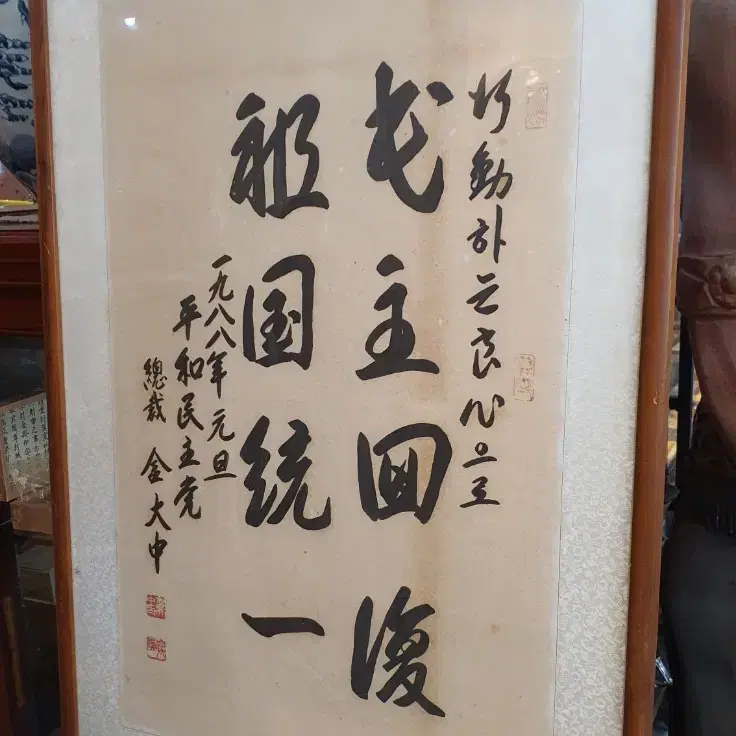 行動하는良心으로
民主回復
祖国統一
一九八八年元旦
平和民主党
總裁 金大中